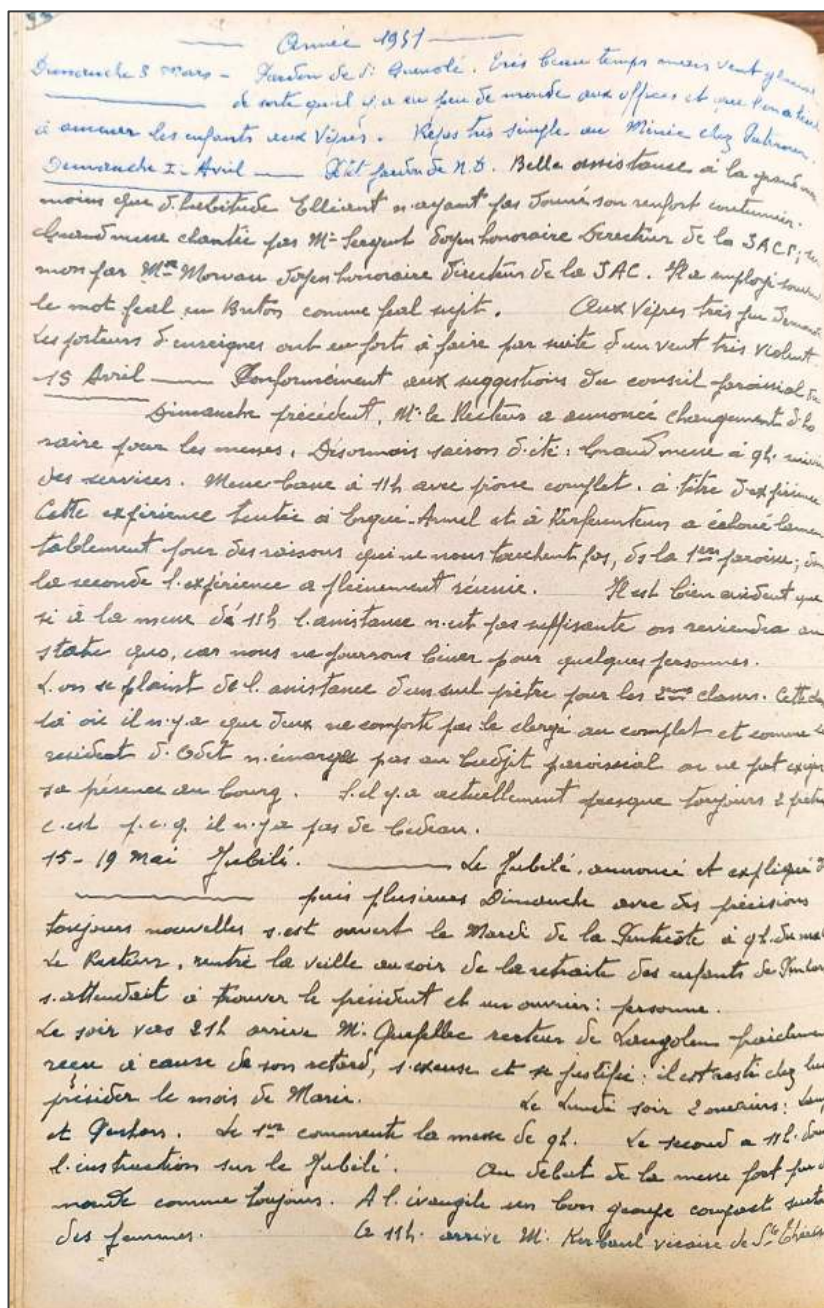 Année 1951
Dimanche 3 Mars - Pardon de St Guenolé. Très beau temps mais vent glacial
de sorte qu'il y a eu peu de monde aux offices et que l'on a
à amener les enfants aux Vêpres. Repas très simple au chez
Dimanche 1. Avril - Petit pardon de N.D. Belle assistance à la grand
moins que d'habitude Elliant n'ayant pas donné son renfort coutumier.
Grand messe chantée par Mr Sergent doyen honoraire Directeur de la JACF;
mon par Mr Morvan doyen honoraire directeur de la JAC. Il a employé souvent
le mot feal en Breton comme feal sujet. Aux Vêpres très peu de monde
Les porteurs d'enseignes ont eu forts à faire par suite d'un vent très violent.
15 Avril - Conformément aux suggestions du conseil paroissial du
Dimanche précédent, Mr le Recteur a annoncé changement d'ho
raire pour les messes. Désormais saison d'été: Grand messe à 9h. suivie
des services. Messe basse à 11h avec prône complet. à titre d'expérience
Cette expérience tentée à Ergué-Armel et à Kerfeunteun a échoué lamen
tablement pour des raisons qui ne nous touchent pas, ds la 1ère paroisse; ds
la seconde l'expérience a pleinement réussie. Il est bien évident que
si à la messe de 11h l'assistance n'est pas suffisante on reviendra au
statu quo, car nous ne pourrons biner pour quelques personnes.
L'on se plaint de l'assistance d'un seul prêtre pour les 2emes classes. Cette
là où il n'y a que deux ne comporte pas le clergé au complet et comme le
résident d'Odet n'émarge pas au budjet paroissial on ne put exiger
sa présence au bourg. S'il y a actuellement presque toujours 2 prêtres
c'est p.c.q. il n'y a pas de bedeau.
15 - 19 Mai Jubilé. Le Jubilé, annoncé et expliqué de
puis plusieurs Dimanche avec des précisions
toujours nouvelles s'est ouvert le Mardi de la Pentecôte à 9h. du mat
Le Recteur, rentré la veille au soir de la retraite des enfants de
s'attendait à trouver le président et un ouvrier: personne.
Le soir vers 21h arrive Mr Queffellec recteur de Langolen fraîchement
reçu à cause de son retard, s'excuse et se justifie: il est resté chez lui
présider le mois de Marie. Le Lundi soir 2 ouvriers:
et. Le 1er commente la messe de 9h. Le second a 11h. donne
l'instruction sur le Jubilé. Au début de la messe fort peu de
monde comme toujours. A l'évangile un bon groupe compact surtout
des femmes. A 11h. arrive Mr Kerbaul vicaire de Ste Thérèse